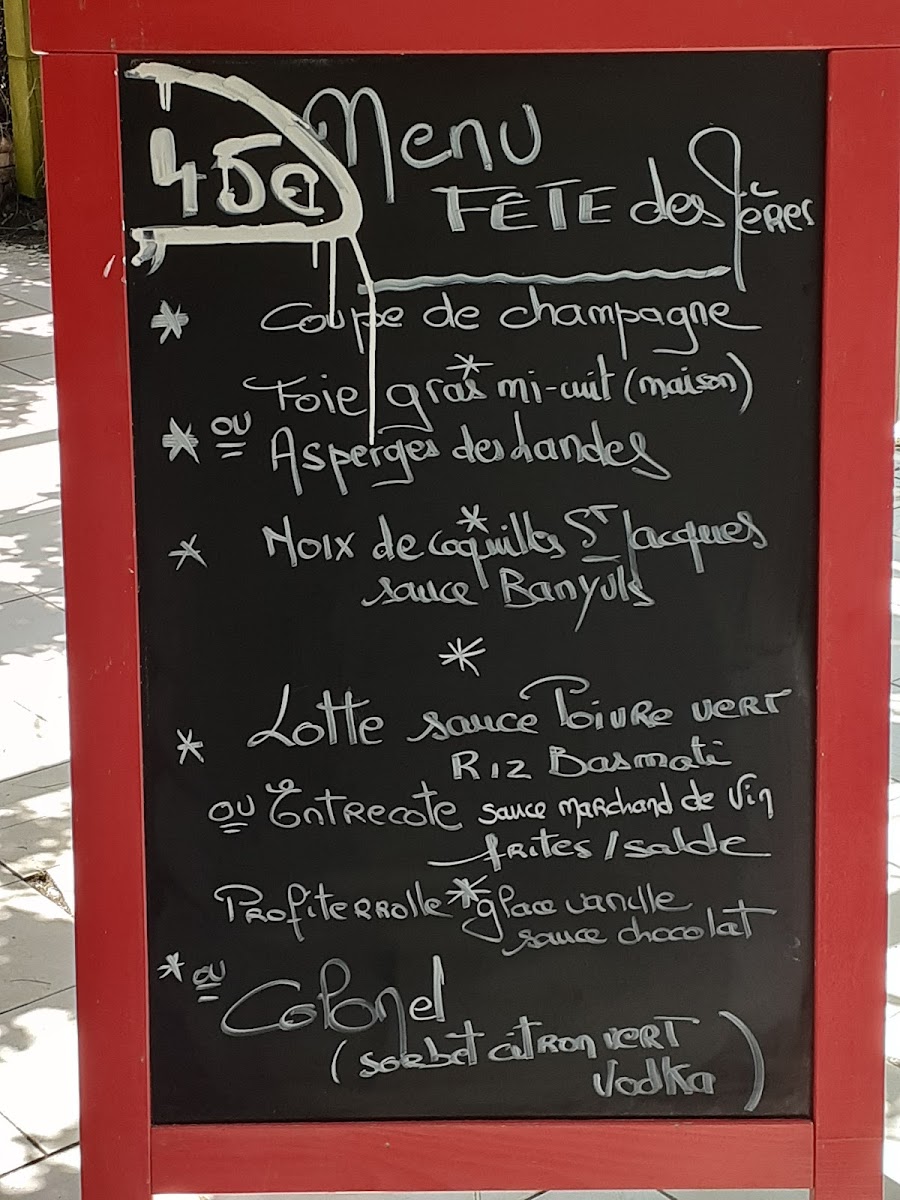 45€
Menu
FÊTE des Pères
* Coupe de champagne
*
Foie gras mi-cuit (maison)
* ou Asperges des Landes
*
* Noix de coquilles St Jacques
sauce Banyuls
*
* Lotte sauce Poivre vert
Riz Basmati
ou Entrecote sauce marchand de Vin
frites / salde
*
Profiterrolle glace vanille
sauce chocolat
* ou Colonel
(sorbet citron vert
Vodka)